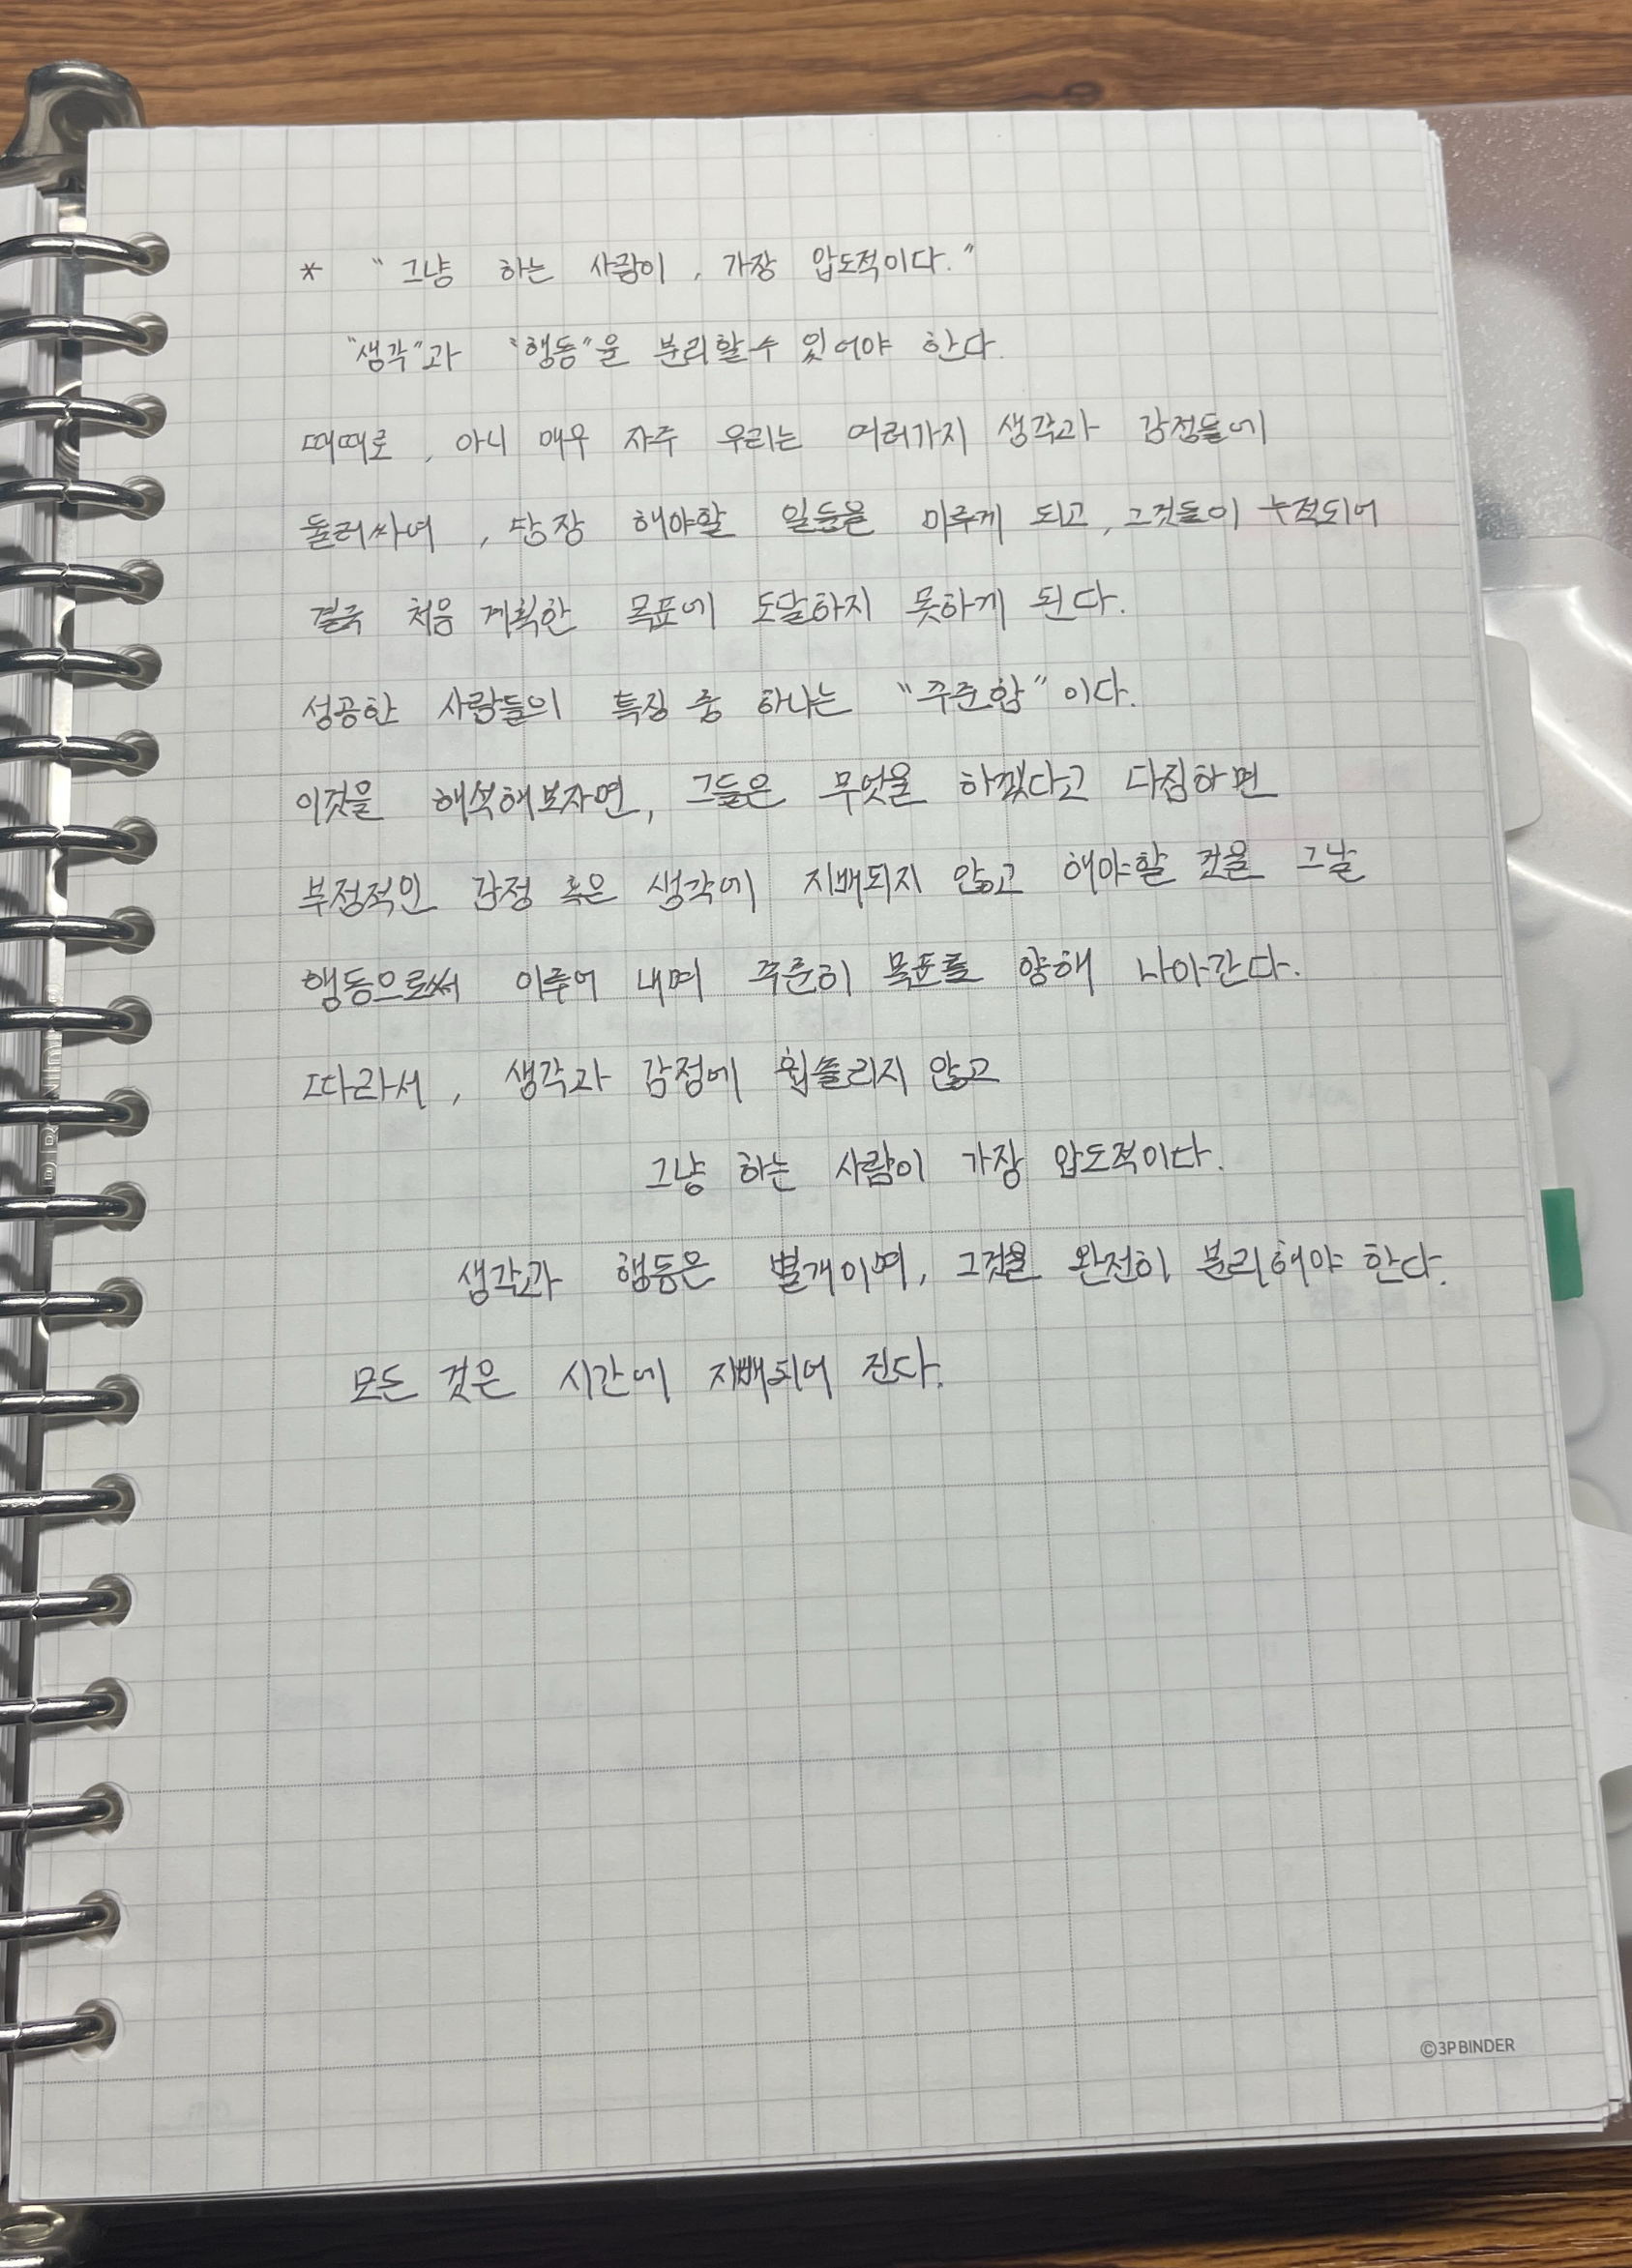 * "그냥 하는 사람이, 가장 압도적이다."
"생각"과 "행동"을 분리할 수 있어야 한다.
때때로, 아니 매우 자주 우리는 여러가지 생각과 감정들에
둘러싸여, 당장 해야할 일들을 미루게 되고, 그것들이 누적되어
결국 처음 계획한 목표에 도달하지 못하게 된다.
성공한 사람들의 특징 중 하나는 "꾸준함"이다.
이것을 해석해보자면, 그들은 무엇을 하겠다고 다짐하면
부정적인 감정 혹은 생각에 지배되지 않고 해야할 것을 그날
행동으로써 이루어 내며 꾸준히 목표를 향해 나아간다.
따라서, 생각과 감정에 휩쓸리지 않고
그냥 하는 사람이 가장 압도적이다.
생각과 행동은 별개이며, 그것을 완전히 분리해야 한다.
모든 것은 시간에 지배되어 진다.
©3P BINDER